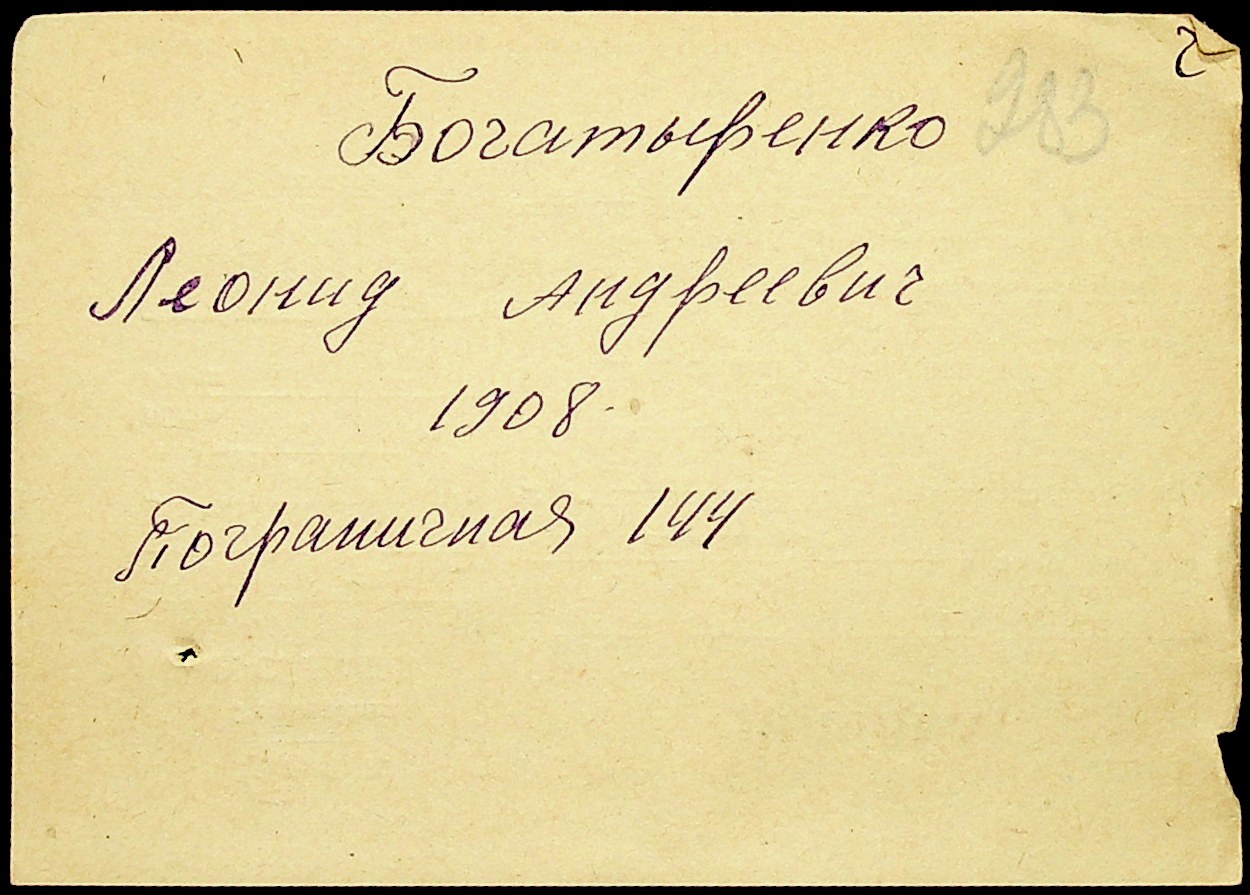 Богатыренко 283
Леонид Андреевич
1908.
Пограничная 144